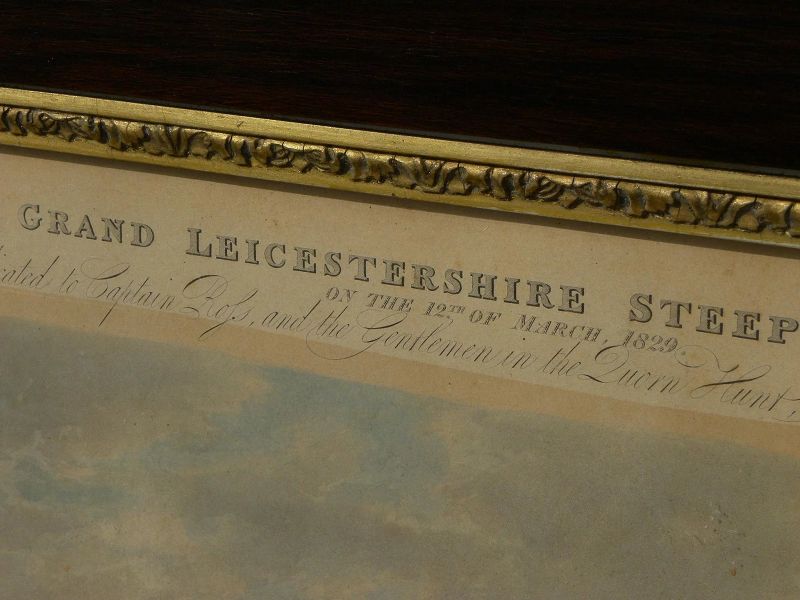 GRAND LEICESTERSHIRE STEEP
ON THE 12TH OF MARCH, 1829.
cated to Captain Roſs, and the Gentlemen in the Quorn Hunt,